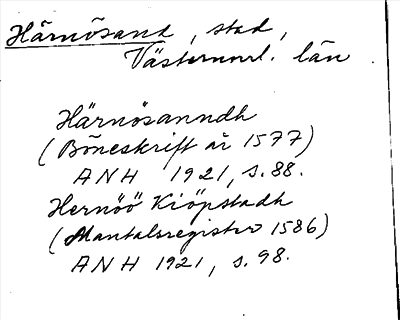 Härnösand, stad,
Västernorrl. län.
Härnösanndh
(Böneskrift år 1577)
ANH 1921, s. 88.
Hernöö Kiöpstadh
(Mantalsregister 1586)
ANH 1921, s. 98.